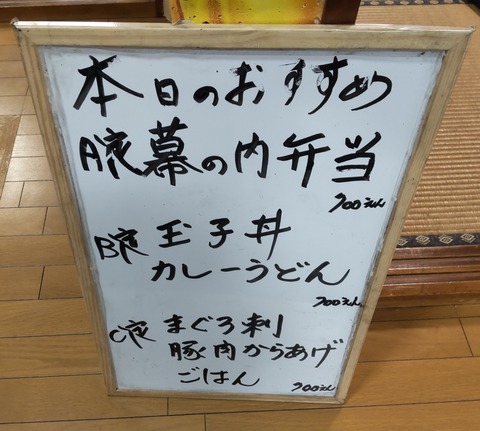 本日のおすすめ
A定 幕の内弁当
900えん
B定 玉子丼
カレーうどん
700えん
C定 まぐろ刺
豚肉からあげ
ごはん
900えん